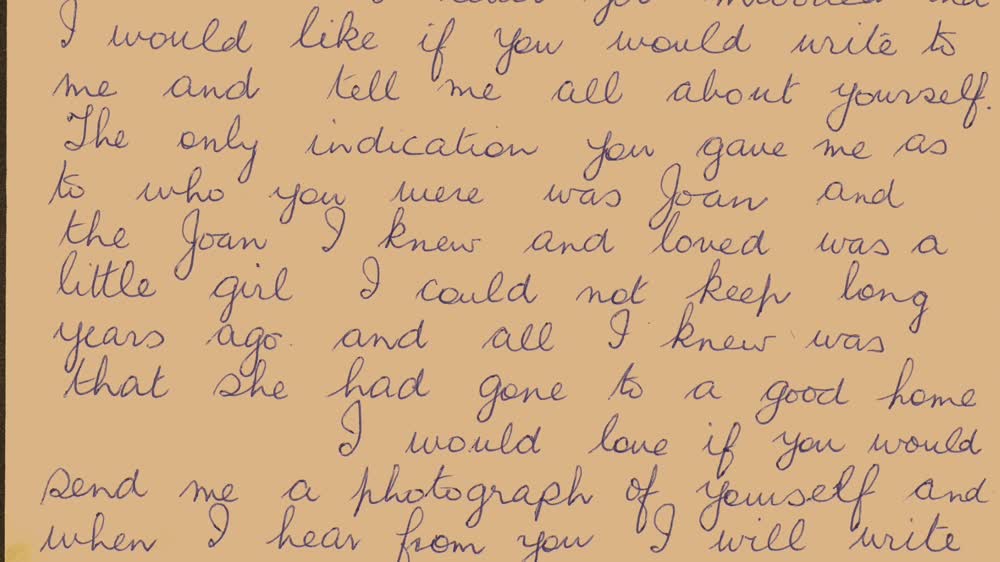 I would like if you would write to
me and tell me all about yourself.
The only indication you gave me as
to who you were was Joan and
the Joan I knew and loved was a
little girl I could not keep long
years ago. and all I knew was
that she had gone to a good home
I would love if you would
send me a photograph of yourself and
when I hear from you I will write